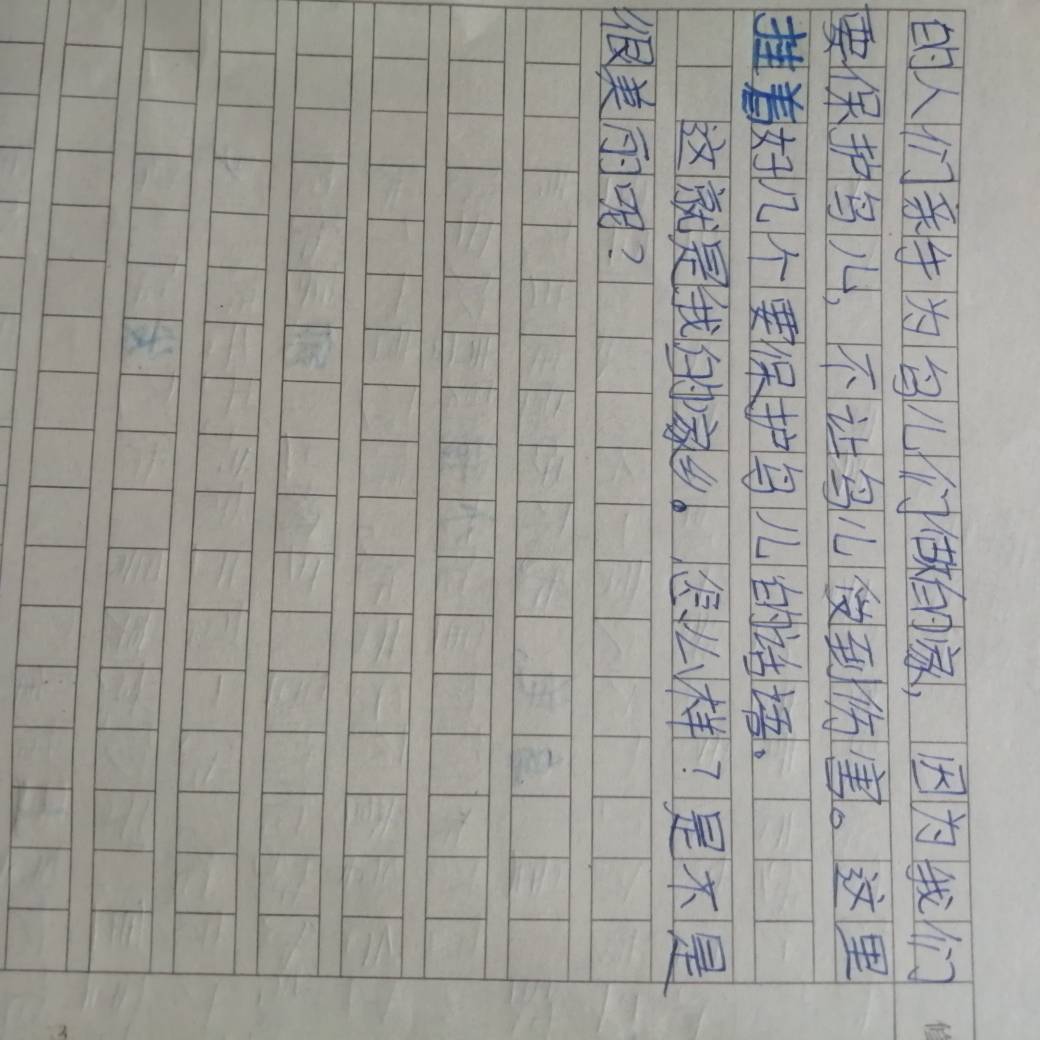 的人们亲手为鸟儿们做的家，因为我们
要保护鸟儿，不让鸟儿受到伤害。这里
挂着好几个要保护鸟儿的话语。
这就是我的家乡。怎么样？是不是
很美丽呢？